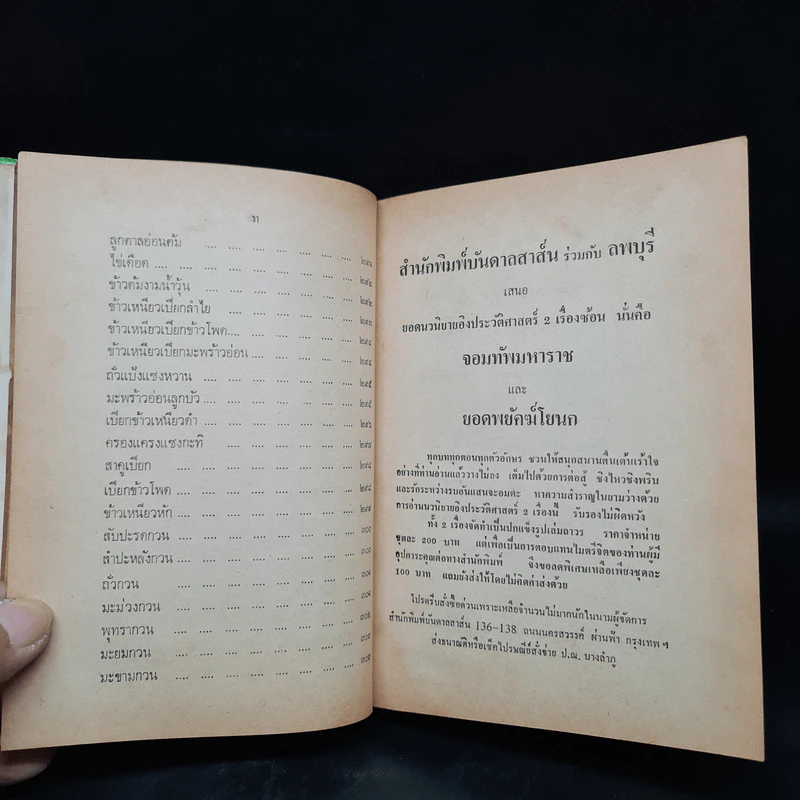 ท
ลูกตาลอ่อนต้ม .... .... .... .... .... .... ๒๙๑
ไข่เดือด .... .... .... .... .... .... .... ๒๙๒
ข้าวต้มงามน้ำวุ้น .... .... .... .... .... ๒๙๒
ข้าวเหนียวเปียกลำไย .... .... .... .... ๒๙๓
ข้าวเหนียวเปียกข้าวโพด.... .... .... .... ๒๙๔
ข้าวเหนียวเปียกมะพร้าวอ่อน .... .... .... ๒๙๔
ถั่วแป้งแซงหวาน .... .... .... .... .... ๒๙๕
มะพร้าวอ่อนลูกบัว .... .... .... .... .... ๒๙๕
เปียกข้าวเหนียวดำ .... .... .... .... .... ๒๙๖
ครองแครงแซงกะทิ .... .... .... .... .... ๒๙๗
สาคูเปียก .... .... .... .... .... .... ๒๙๘
เปียกข้าวโพด .... .... .... .... .... .... ๒๙๘
ข้าวเหนียวหัก .... .... .... .... .... .... ๒๙๙
สับปะรดกวน .... .... .... .... .... .... ๓๐๐
สำปะหลังกวน .... .... .... .... .... .... ๓๐๐
ถั่วกวน .... .... .... .... .... .... .... ๓๐๑
มะม่วงกวน .... .... .... .... .... .... ๓๐๑
พุทรากวน .... .... .... .... .... .... ๓๐๒
มะยมกวน .... .... .... .... .... .... ๓๐๓
มะขามกวน .... .... .... .... .... .... ๓๐๓
สำนักพิมพ์บันดาลสาส์น ร่วมกับ ลพบุรี
เสนอ
ยอดนวนิยายอิงประวัติศาสตร์ 2 เรื่องซ้อน นั่นคือ
จอมทัพมหาราช
และ
ยอดพยัคฆ์โยนก
ทุกบททุกตอนทุกตัวอักษร ชวนให้สนุกสนานตื่นเต้นเร้าใจ
อย่างที่ท่านอ่านแล้ววางไม่ลง เต็มไปด้วยการต่อสู้ ชิงไหวชิงพริบ
และรักระหว่างรบอันแสนจะอมตะ หาความสำราญในยามว่างด้วย
การอ่านนวนิยายอิงประวัติศาสตร์ 2 เรื่องนี้ รับรองไม่ผิดหวัง
ทั้ง 2 เรื่องจัดทำเป็นปกแข็งรูปเล่มถาวร ราคาจำหน่าย
ชุดละ 200 บาท แต่เพื่อเป็นการตอบแทนไมตรีจิตของท่านผู้มี
อุปการะคุณต่อทางสำนักพิมพ์ จึงขอลดพิเศษเหลือเพียงชุดละ
100 บาท แถมยังส่งให้โดยไม่คิดค่าส่งด้วย
โปรดรีบสั่งซื้อด่วนเพราะเหลือจำนวนไม่มากนักในนามผู้จัดการ
สำนักพิมพ์บันดาลสาส์น 136-138 ถนนนครสวรรค์ ผ่านฟ้า กรุงเทพ ฯ
ส่งธนาณัติหรือเช็คไปรษณีย์สั่งจ่าย ป.ณ. บางลำภู